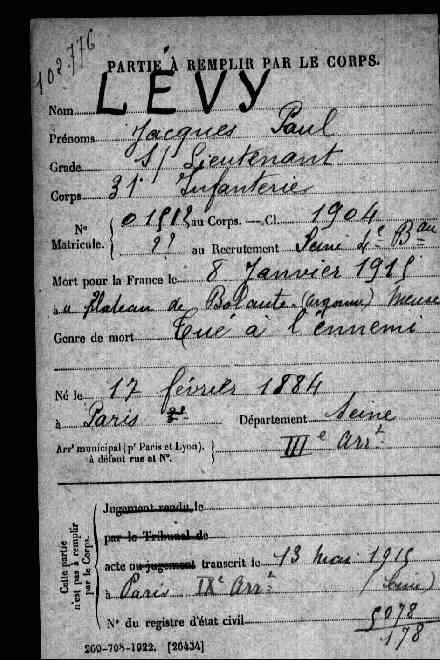 102.776
PARTIE À REMPLIR PAR LE CORPS.
Nom LEVY
Prénoms Jacques Paul
Grade S/ Lieutenant
Corps 31e Infanterie
N° Matricule. { 01512 au Corps. — Cl. 1904
?? au Recrutement Seine 4e Bau
Mort pour la France le 8 Janvier 1915
à u plateau de Bolante (Argonne) Meuse
Genre de mort Tué à l'ennemi
Né le 17 février 1884
à Paris Département Seine
Arrt municipal (pr Paris et Lyon), à défaut rue et N°. } IIIe Arrt
Cette partie n'est pas à remplir par le Corps.
Jugement rendu le
par le Tribunal de
acte ou jugement transcrit le 13 Mai 1915
à Paris IXe Arrt (Seine)
N° du registre d'état civil
5078
178
260-708-1922. [26434]